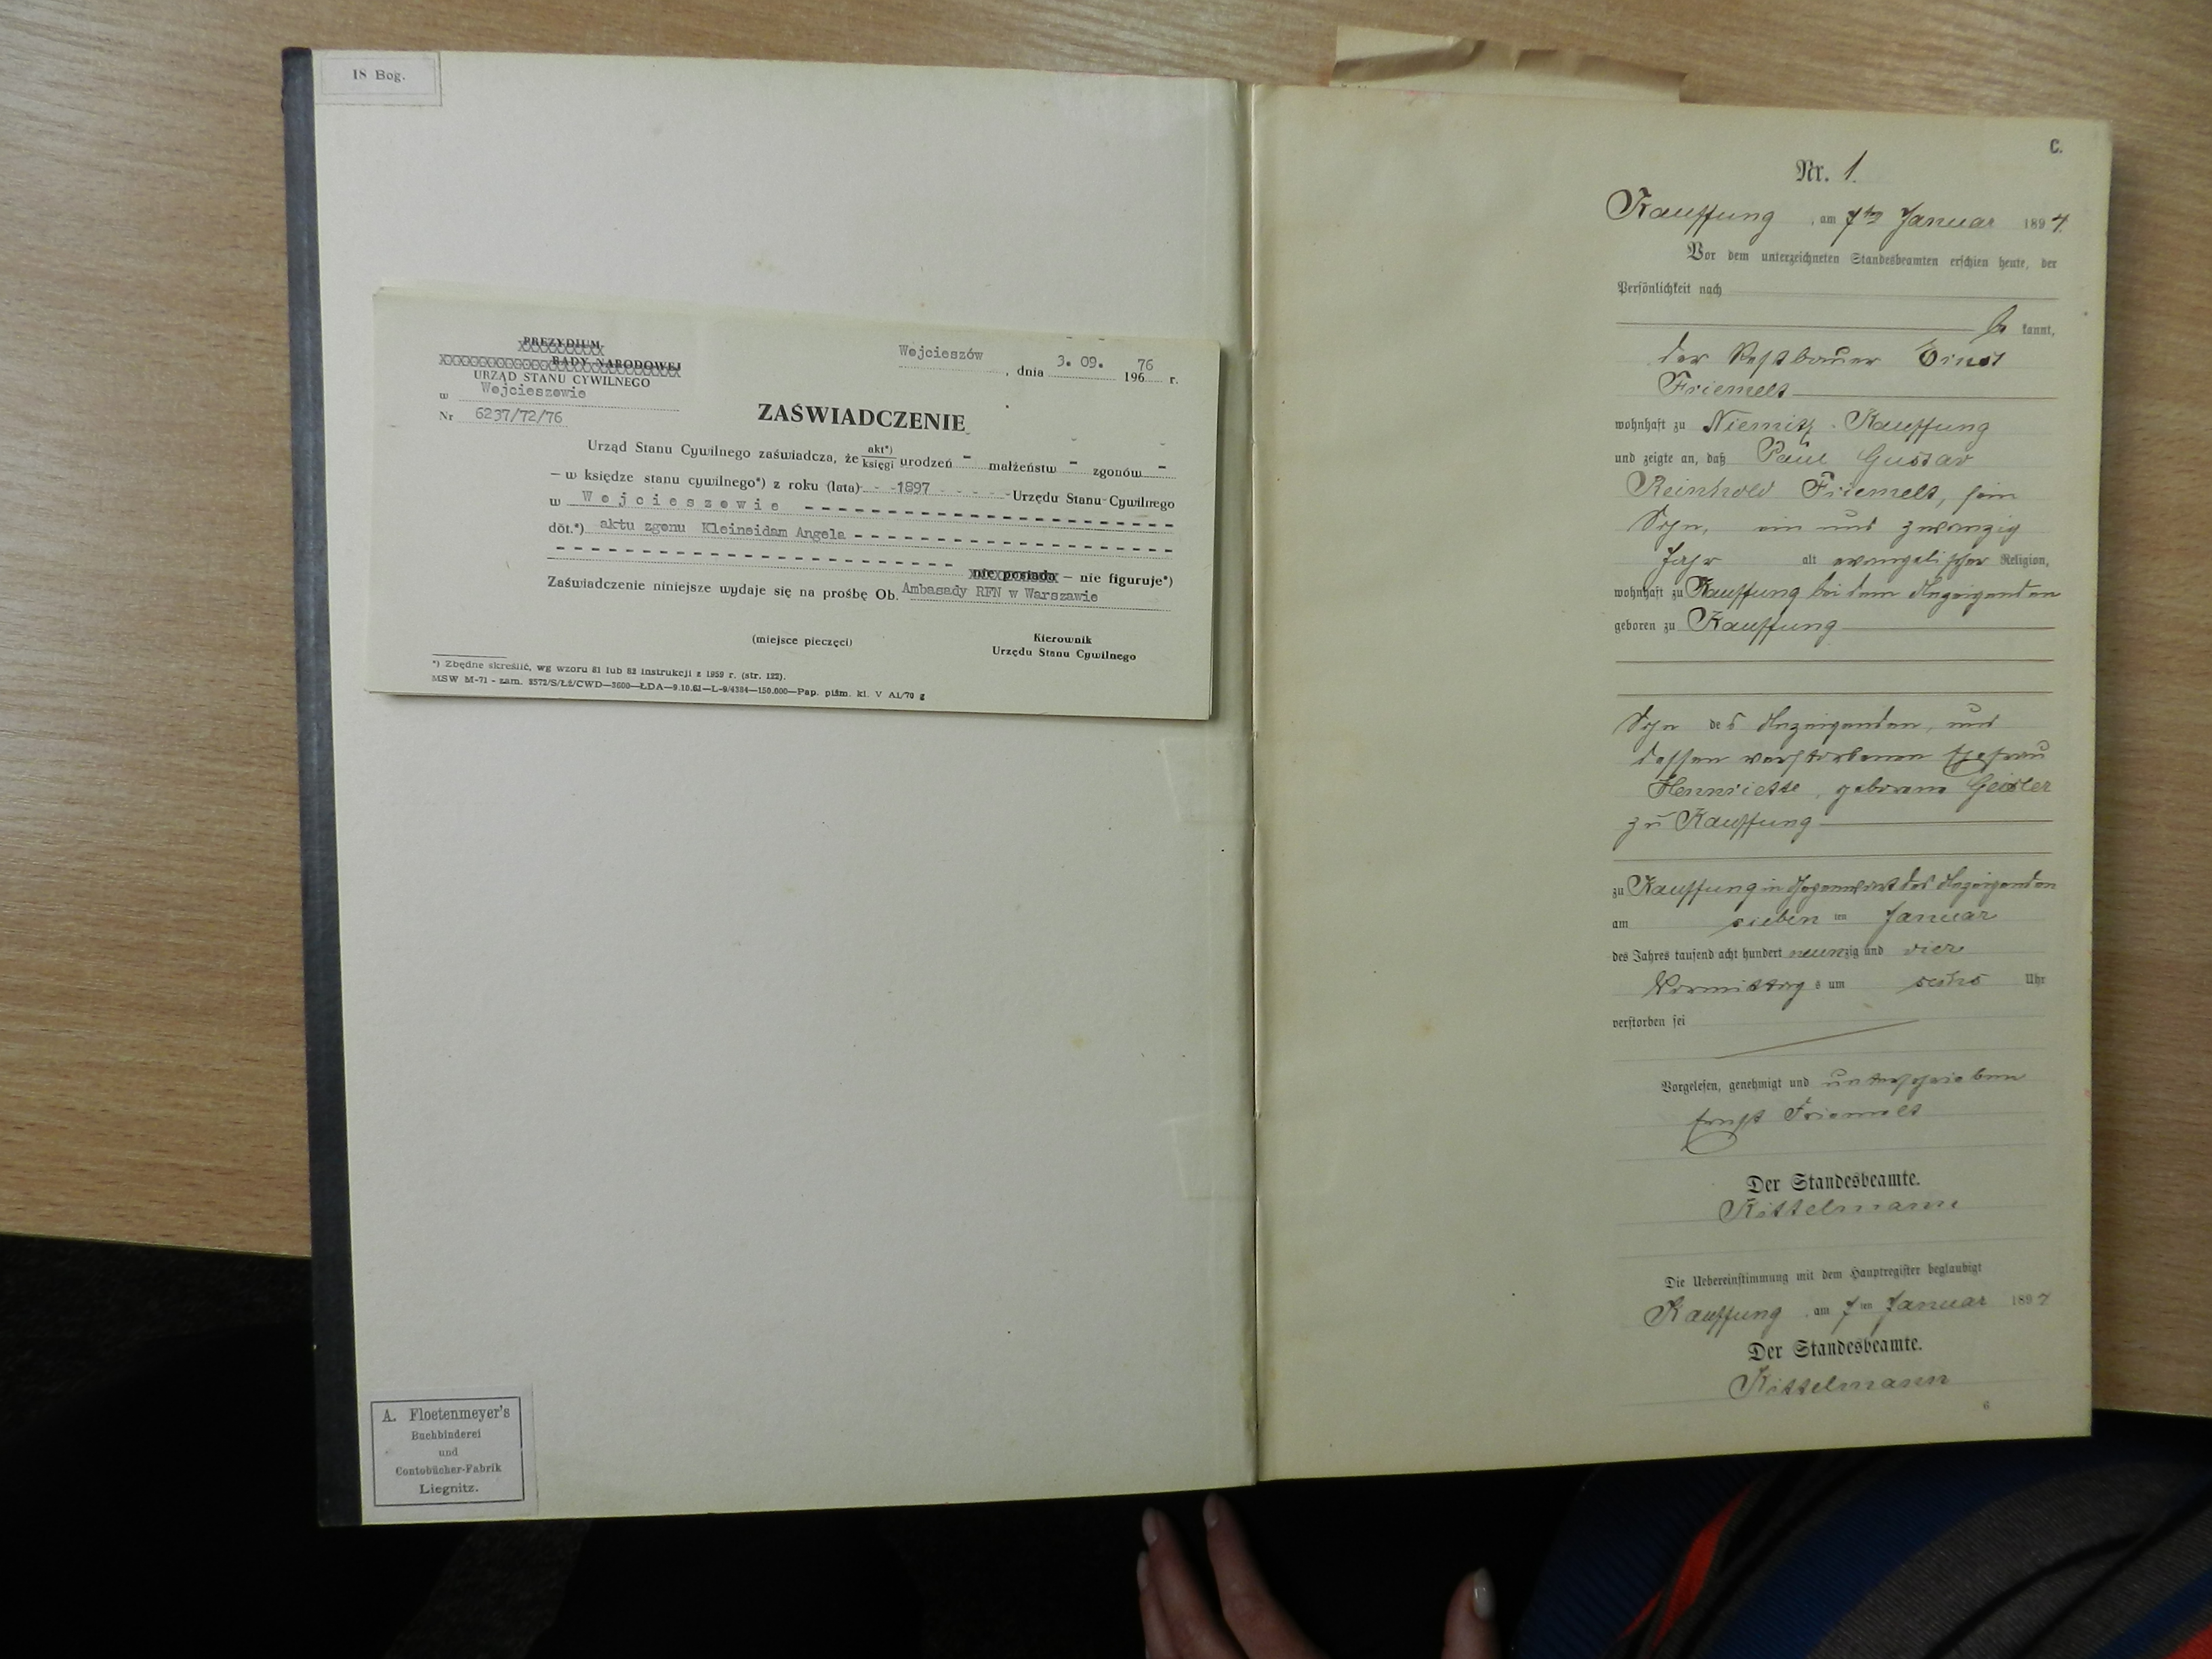 18 Bog.
PREZYDIUM
RADY NARODOWEJ
URZĄD STANU CYWILNEGO
w Wojcieszowie
Nr 6237/72/76
Wojcieszów, dnia 3. 09. 1976 r.
ZAŚWIADCZENIE
Urząd Stanu Cywilnego zaświadcza, że akt*) księgi urodzeń – małżeństw – zgonów –
– w księdze stanu cywilnego*) z roku (lata) - -1897 - - - - - Urzędu Stanu Cywilnego
w Wojcieszowie
dot.*) aktu zgonu Kleineidam Angela
nie posiada – nie figuruje*)
Zaświadczenie niniejsze wydaje się na prośbę Ob. Ambasady RFN w Warszawie
(miejsce pieczęci)
Kierownik
Urzędu Stanu Cywilnego
*) Zbędne skreślić, wg wzoru 81 lub 82 instrukcji z 1959 r. (str. 122).
MSW M-71 - zam. 8572/S/ŁŻ/CWD—3600—ŁDA—9.10.61—L-9/4384—150.000—Pap. piśm. kl. V A1/70 g
A. Floetenmeyer's
Buchbinderei
und
Contobücher-Fabrik
Liegnitz.
C.
Nr. 1.
Kauffung, am 7ten Januar 1894.
Vor dem unterzeichneten Standesbeamten erschien heute, der
Persönlichkeit nach
be kannt,
der Restbauer Ernst
Friemelt
wohnhaft zu Niemitz-Kauffung
und zeigte an, daß Paul Gustav
Reinhold Friemelt, sein
Sohn, ein und zwanzig
Jahr alt evangelischer Religion,
wohnhaft zu Kauffung bei dem Anzeigenden
geboren zu Kauffung
Sohn des Anzeigenden, und
dessen verstorbenen Ehefrau
Henriette, geborene Geisler
zu Kauffung
zu Kauffung in Gegenwart des Anzeigenden
am sieben ten Januar
des Jahres tausend acht hundert neunzig und vier
Vormittags um sechs Uhr
verstorben sei
Vorgelesen, genehmigt und unterschrieben
Ernst Friemelt
Der Standesbeamte.
Kittelmann
Die Uebereinstimmung mit dem Hauptregister beglaubigt
Kauffung, am 7ten Januar 1894
Der Standesbeamte.
Kittelmann
6